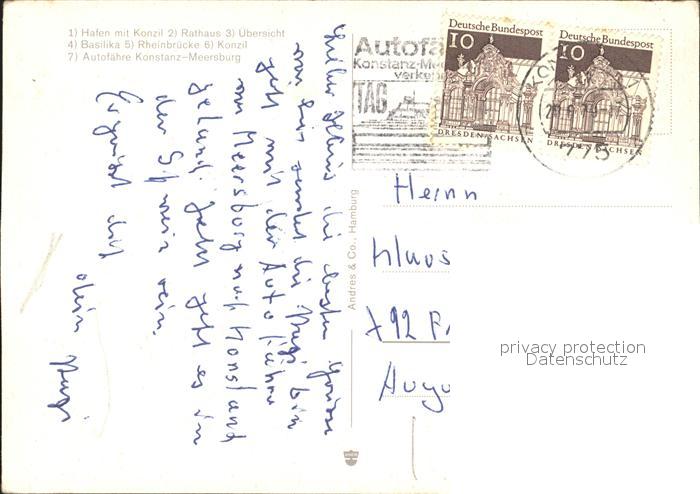 1) Hafen mit Konzil 2) Rathaus 3) Übersicht
4) Basilika 5) Rheinbrücke 6) Konzil
7) Autofähre Konstanz–Meersburg
Autofä
Konstanz-Mee
verkeh
TAG
Deutsche Bundespost
10
DRESDEN/SACHSEN
Deutsche Bundespost
10
DRESDEN/SACHSEN
KON
775
die besten Grüsse
von hier sendet dir bin
jetzt mit der Autofähre
von Meersburg nach Konstanz
gelandet jetzt geht es in
die Schweiz rein.
Es grüßt dich
dein
Andres & Co., Hamburg
Herrn
Klaus
792 F
Augu
privacy protection
Datenschutz